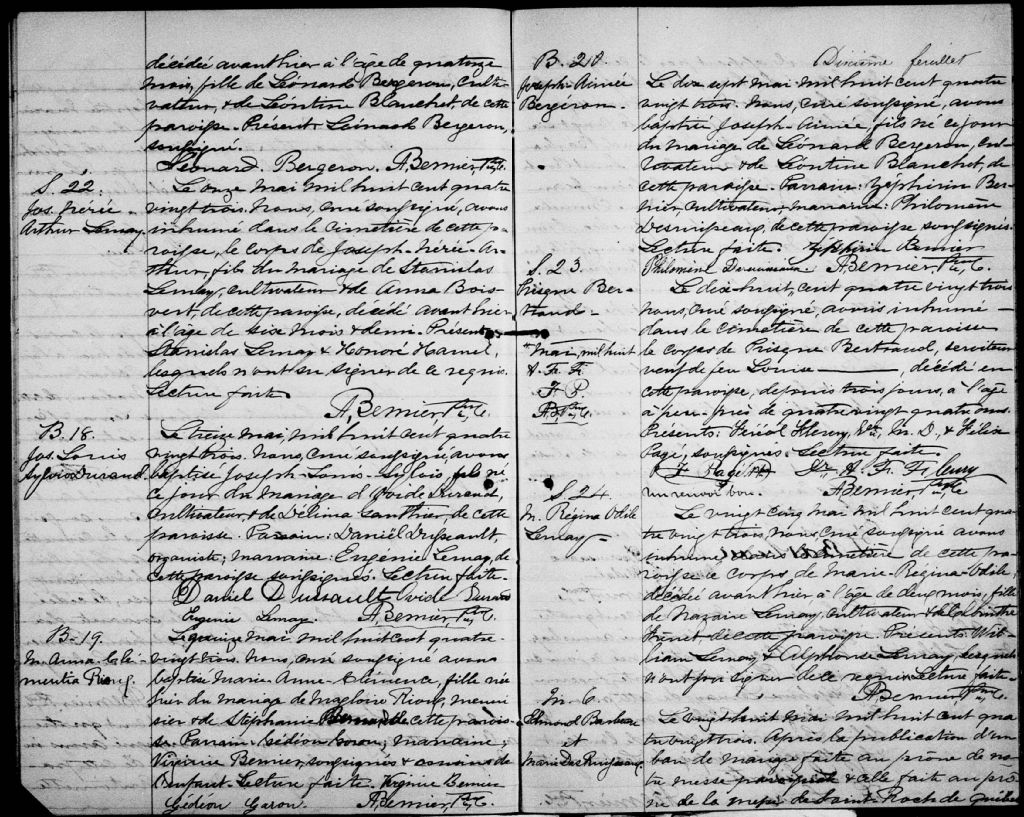 décédée avant hier à l'âge de quatorze
mois, fille de Léonard Bergeron, culti-
vateur, & de Léontine Blanchet, de cette
paroisse. Présent Léonard Bergeron,
soussigné.
Léonard Bergeron. A. Bernier, Ptre C.
S. 22.
Jos. Nérée
Arthur Lemay.
Le onze mai mil huit cent quatre
vingt trois, nous, curé soussigné, avons
inhumé dans le cimetière de cette pa-
roisse, le corps de Joseph-Nérée-Ar-
thur, fils du mariage de Stanislas
Lemay, cultivateur & de Anna Bois-
vert, de cette paroisse, décédé avant hier
à l'âge de six mois & demi. Présents
Stanislas Lemay & Honoré Hamel,
lesquels n'ont su signer de ce requis.
Lecture faite.
A. Bernier, Ptre C.
B. 18.
Jos. Louis
Sylvio Durand
Le treize mai, mil huit cent quatre
vingt trois, nous, curé soussigné, avons
baptisé Joseph-Louis-Sylvio, fils né
ce jour du mariage d'Ovide Durand,
cultivateur, & de Délima Gauthier, de cette
paroisse. Parrain: Daniel Dussault,
organiste, marraine: Eugénie Lemay, de
cette paroisse soussignés. Lecture faite.
Daniel Dussault Ovide Durand
Eugénie Lemay. A. Bernier, Ptre C.
B. 19.
M. Anna-Clé-
mentia Rioux.
Le quinze mai mil huit cent quatre
vingt trois, nous, curé soussigné avons
baptisé Marie-Anne-Clémence, fille née
hier du mariage de Magloire Rioux, menui
sier & de Stéphanie de cette parois-
se. Parrain: Gédéon Garon, marraine,
Virginie Bernier, soussignés & cousins de
l'enfant. Lecture faite. Virginie Bernier
Gédéon Garon. A. Bernier, Ptre C.
Dixième feuillet
B. 20.
Joseph-Aimée
Bergeron.
Le dix sept mai mil huit cent quatre
vingt trois, nous, curé soussigné, avons
baptisé Joseph-Aimée, fils né ce jour
du mariage de Léonard Bergeron, cul-
tivateur & de Léontine Blanchet, de
cette paroisse. Parrain: Zéphirin Ber-
nier, cultivateur, marraine: Philomène
de cette paroisse soussignés.
Lecture faite. Zéphirin Bernier
Philomène A. Bernier, Ptre C.
S. 23.
Prisque Ber-
trand.
Le dix-huit, cent quatre vingt trois
nous, curé soussigné, avons inhumé
dans le cimetière de cette paroisse
le corps de Prisque Bertrand, serviteur
veuf de feu Louise ———, décédé en
cette paroisse, depuis trois jours, à l'âge
à peu-près de quatre vingt quatre ans.
Présents: Fleury, Ecr, M. D., & Félix
Pagé, soussignés. Lecture faite.
F. Pagé Fr. Fleury
un renvoi bon. A. Bernier, Ptre C.
" mai, mil huit
A. Fr. F.
F. P.
A. B. Ptre C.
S. 24.
M. Régina Odile
Lemay
Le vingt cinq mai mil huit cent qua-
tre vingt trois, nous, curé soussigné avons
inhumé, cimetière de cette pa-
roisse le corps de Marie-Régina-Odile,
décédée avant hier à l'âge de deux mois, fille
de Nazaire Lemay, cultivateur & de
de cette paroisse. Présents: Wil-
liam Lemay & Alphonse Lemay, lesquels
n'ont pu signer de ce requis. Lecture faite.
A. Bernier, Ptre C.
M. 6.
Edmond Barbeau
et
Marie
Le vingt huit mai mil huit cent qua-
tre vingt trois. Après la publication d'un
ban de mariage faite au prône de no-
tre messe paroissiale & celle faite au prô-
ne de la messe de Saint-Roch de Québec